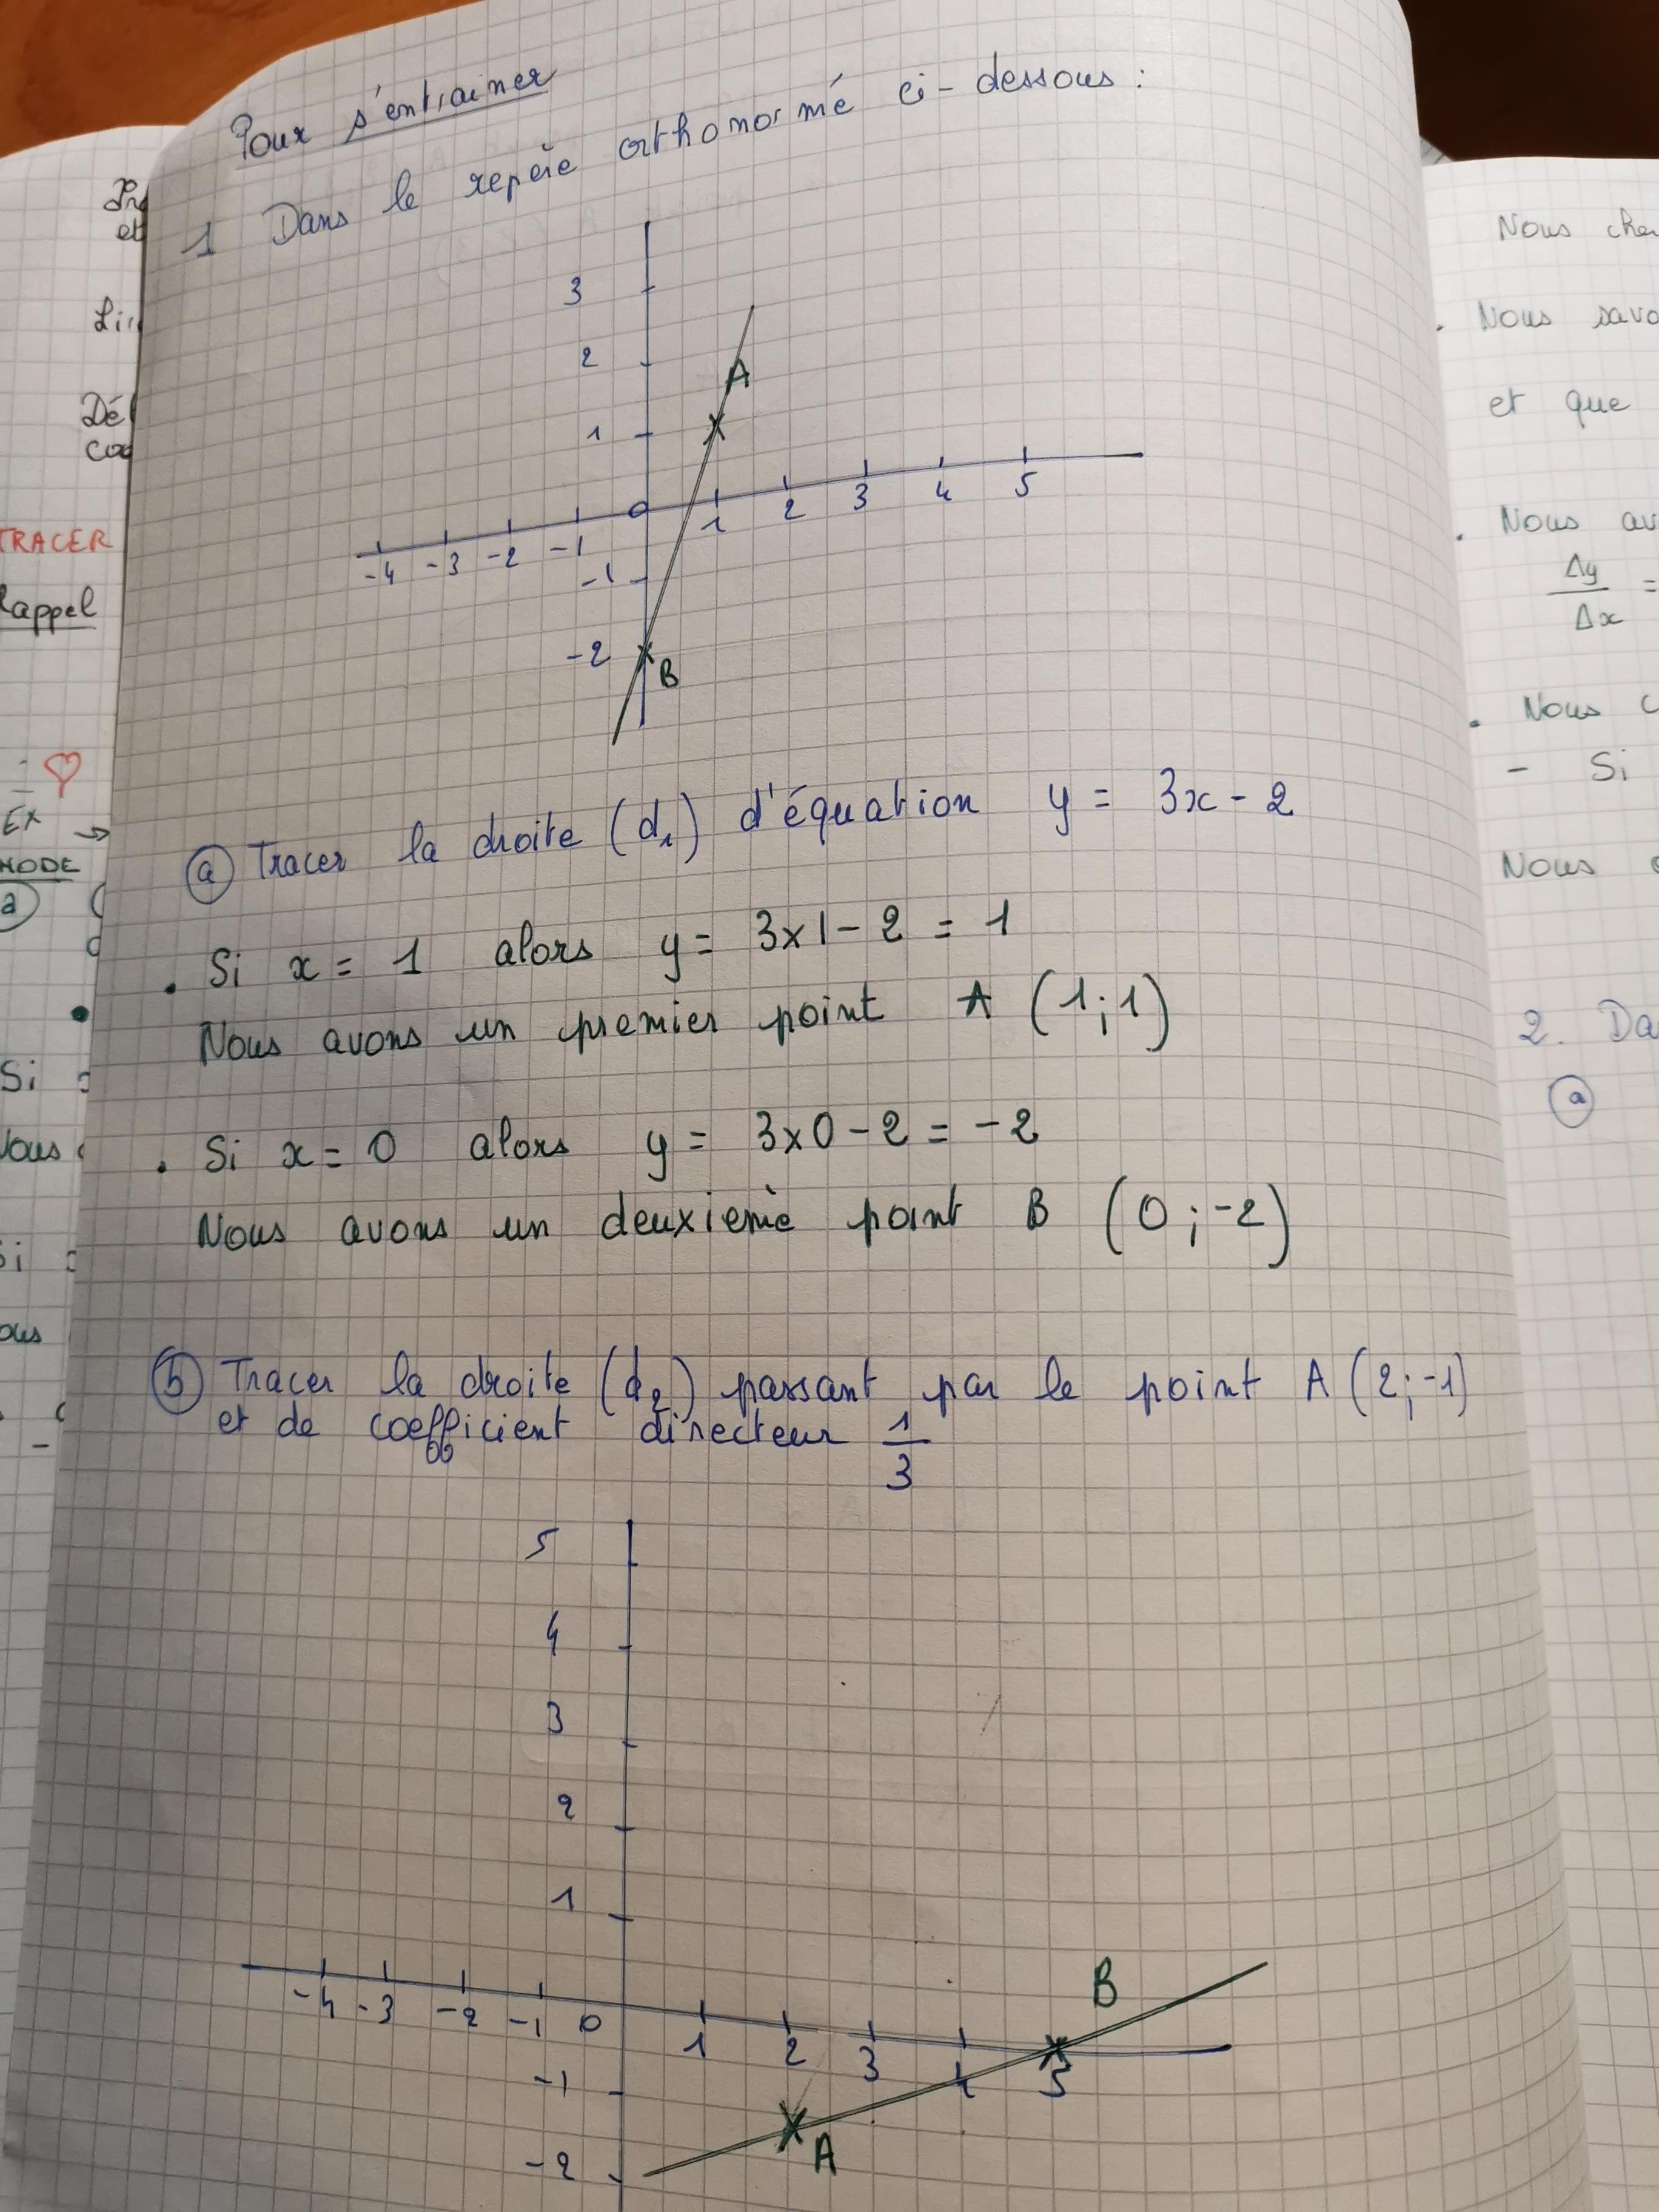 Pour s'entrainer
1 Dans le repère orthonormé ci-dessous :
3
2
A
1
-4 -3 -2 -1 0 1 2 3 4 5
-1
-2
B
ⓐ Tracer la droite (d₁) d'équation y = 3x - 2
. Si x = 1 alors y = 3x1 - 2 = 1
Nous avons un premier point A (1;1)
. Si x = 0 alors y = 3x0 - 2 = -2
Nous avons un deuxiemè point B (0;-2)
ⓑ Tracer la droite (d₂) passant par le point A (2;-1)
et de coefficient directeur 1/3
5
4
3
2
1
B
-4 -3 -2 -1 0 1 2 3 4 5
-1
A
-2
et
TRACER
Rappel
Ex →
ⓐ
Si
Nous
. Nous
et que
. Nous
Δy/Δx =
. Nous
- Si
Nous
2.
ⓐ